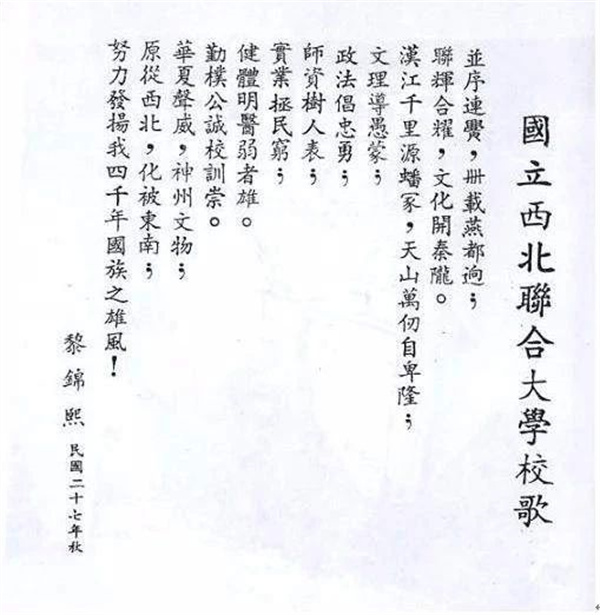 國立西北聯合大學校歌
並序連黌，卌載燕都迥；
聯輝合耀，文化開秦隴。
漢江千里源蟠冢，天山萬仞自卑隆；
文理導愚蒙；
政法倡忠勇；
師資樹人表；
實業拯民窮；
健體明醫弱者雄。
勤樸公誠校訓崇。
華夏聲威，神州文物；
原從西北，化被東南；
努力發揚我四千年國族之雄風！
黎錦熙 民國二十七年秋